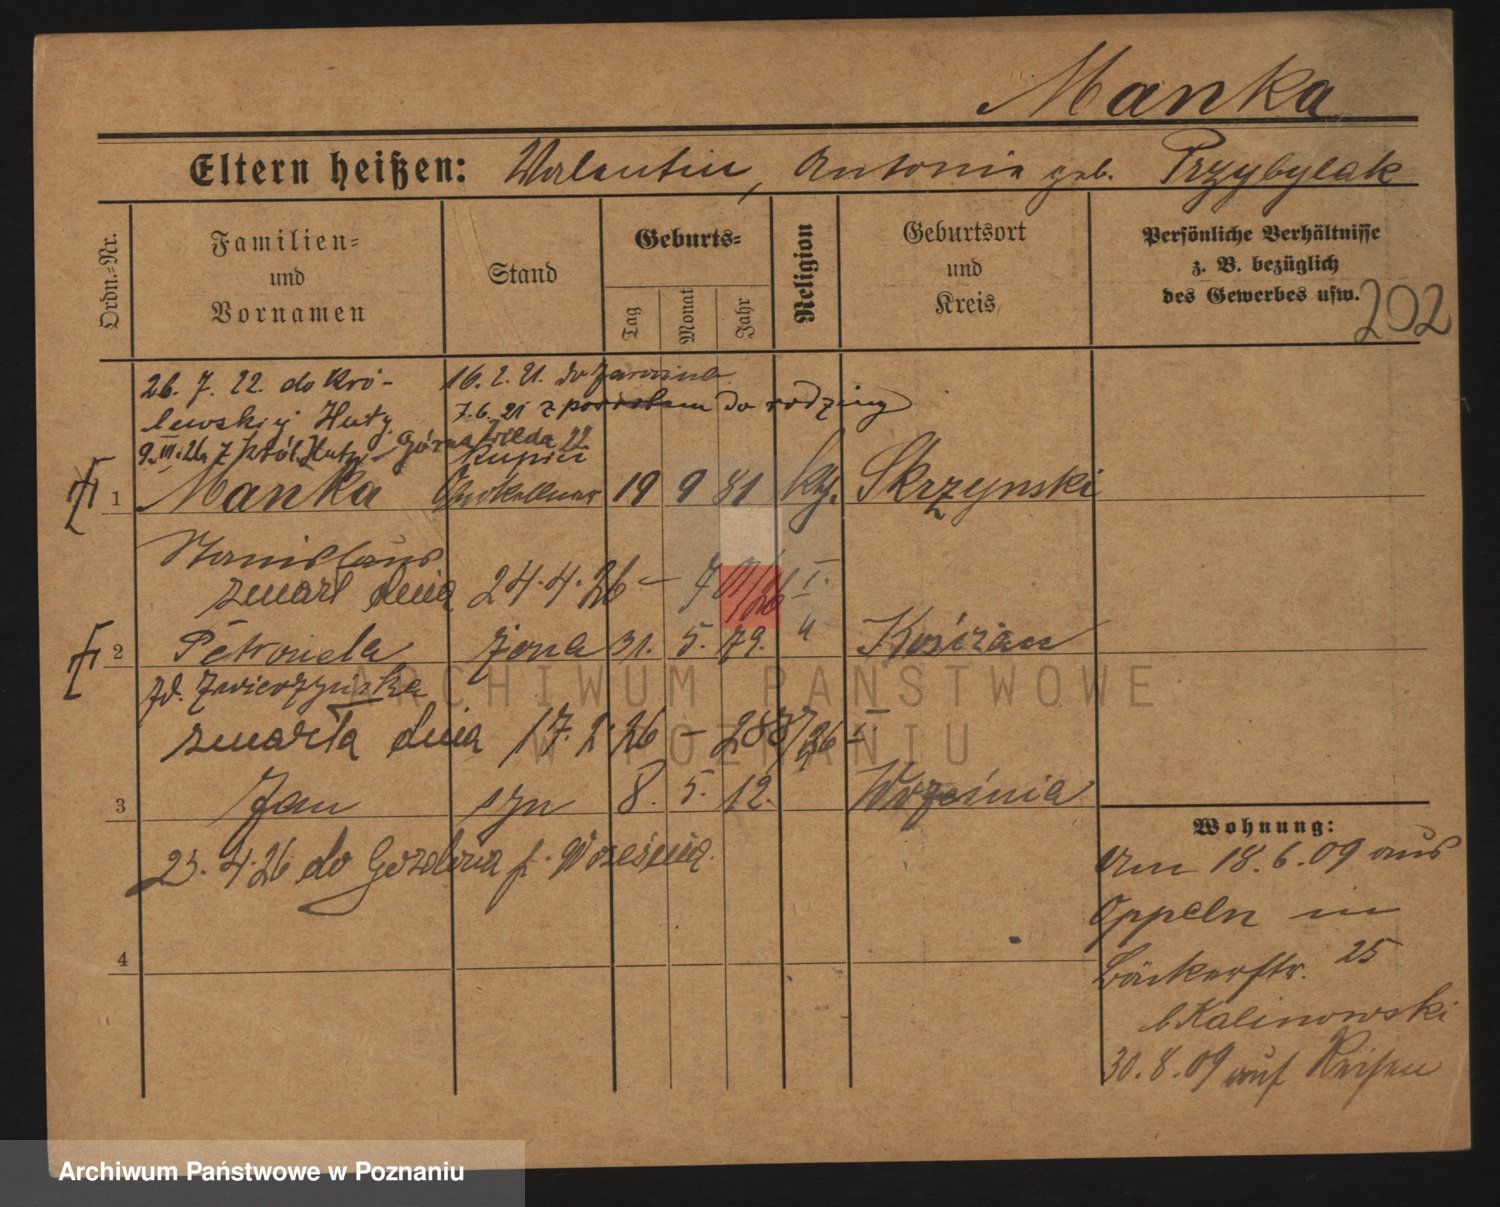 Manka
Eltern heißen: Valentin, Antonie geb. Przybylak
Ordn.-Nr.
Familien-
und
Vornamen
Stand
Geburts-
Tag
Monat
Jahr
Religion
Geburtsort
und
Kreis
Persönliche Verhältnisse
z. B. bezüglich
des Gewerbes usw.
202
26. 7. 22. do Kró-
lewskiej Huty
16. 2. 21. do
7.6.21 z do rodziny
9.III.26 z Król. Huty - Górna Wilda 22
Kupiec
1 Manka Oberkellner 19 9 81 kth. Skrzynski
Stanislaus
zmarł dnia 24.4.26 - I.
2 Petronela żona 31. 5. 79. " Kościan
zd. Zwierzyńska
zmarła dnia 17. 2. 26 - 287/26 I
3 Jan syn 8. 5. 12. Września
23. 4. 26 do Gozdowa p. Września.
4
Wohnung:
Am 18.6.09 aus
Oppeln in
Bäckerstr. 25
b Kalinowski
30.8.09 auf Reisen
ARCHIWUM PAŃSTWOWE
W POZNANIU
Archiwum Państwowe w Poznaniu